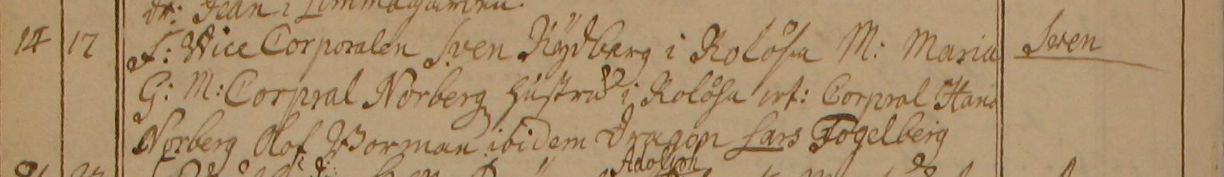 dr: Jean i Limmagården
14 17 F: Vice Corporalen Sven Rydberg i Rolösa M: Maria Sven
G: M: Corpral Norberg hustru i Rolösa vit: Corpral Hans
Norberg Olof Borman ibidem Dragon Lars Fogelberg
Adolph